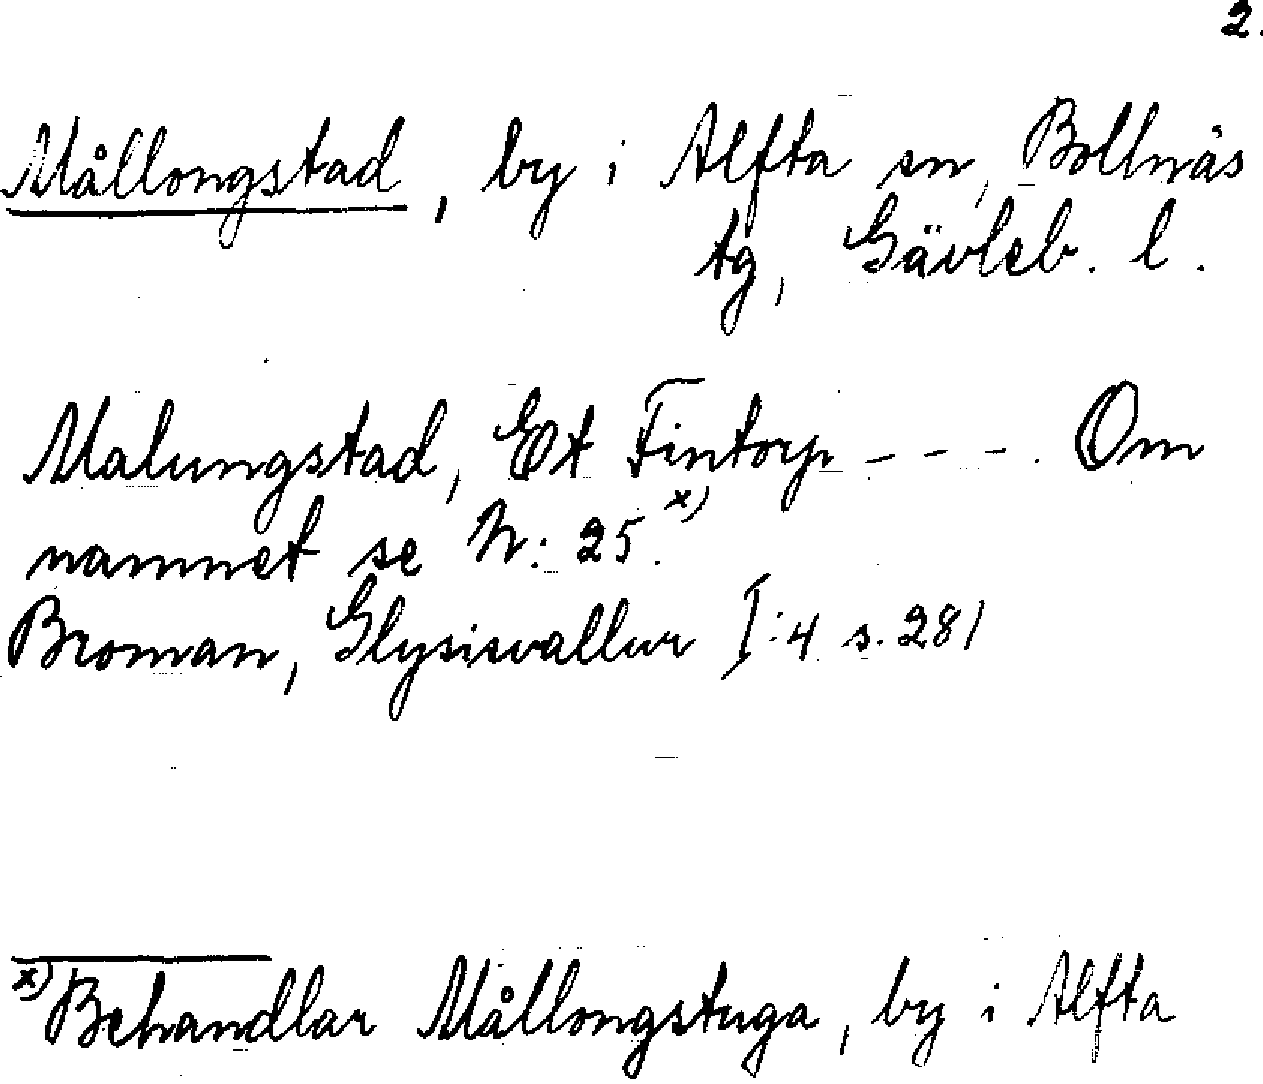 2.
Mållongstad, by i Alfta sn, Bollnäs
tg, Gävleb. l.
Malungstad, Et Fintorp - - - . Om
namnet se N: 25.x)
Broman, Glysisvallur I:4 s. 281
x) Behandlar Mållongstuga, by i Alfta